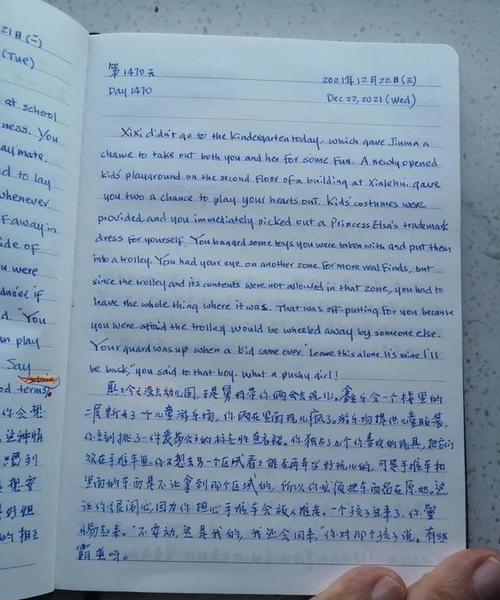 21日(二)
(Tue)
at school
ness. You
aymate.
d to lay
whenever
Faway in
ide of
u were
. You
an play
Say
od terms?
第1470天
2021年12月22日(三)
Day 1470
Dec 22, 2021 (Wed)
Xixi didn't go to the kindergarten today, which gave Jiuma a
chance to take out both you and her for some fun. A newly opened
kids' playground on the second floor of a building at Xinlehui, gave
you two a chance to play your hearts out. Kids' costumes were
provided, and you immediately picked out a Princess Elsa's trademark
dress for yourself. You bagged some toys you were taken with and put them
into a trolley. You had your eye on another zone for more real finds, but
since the trolley and its contents were not allowed in that zone, you had to
leave the whole thing where it was. That was off-putting for you because
you were afraid the trolley would be wheeled away by someone else.
Your guard was up when a kid came over. "Leave this alone. It's mine. I'll
be back," you said to that boy. What a pushy girl!
熙熙今天没去幼儿园,于是舅妈带你两出去玩儿。鑫乐会一个楼里的
二层新开了个儿童游乐场,你俩在里面玩儿疯了。游乐场提供儿童服装,
你立刻挑了一件爱莎公主的标志性连衣裙。你独占了几个你喜欢的玩具,把它们
放在手推车里。你又想去另一个区域看看能否再弄些好玩儿的,可是手推车和
里面的东西是不让拿到那个区域的,所以你必须把东西留在原地。这
让你很闹心,因为你担心手推车会被人推走。一个孩子过来了,你警
惕起来。“不要动,这是我的,我还会回来,”你对那个孩子说。有些
霸道呀。